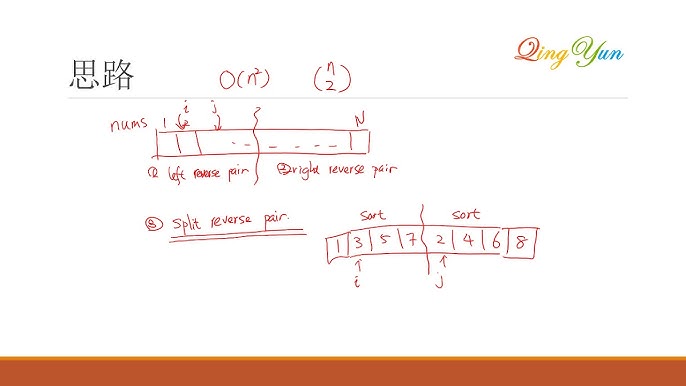 Qing Yun
思路 O(n²) (n 2)
i j
nums 1 2 N
① left reverse pair ② right reverse pair
③ split reverse pair.
sort sort
1 3 5 7 2 4 6 8
i j